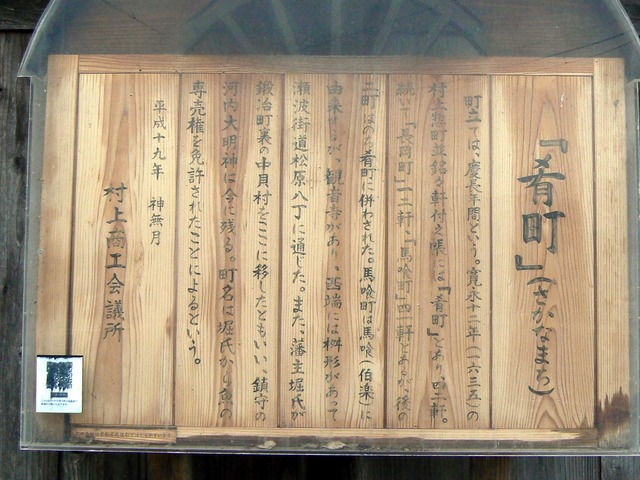 「肴町」(さかなまち)
町立ては、慶長年間という。寛永十二年(一六三五)の
村上惣町並銘々軒付之帳には『肴町』とあり、四二軒。
続いて「長岡町」一二軒、「馬喰町」四一軒とあるが後の
二町はのち肴町に併わされた。馬喰町は馬喰(伯楽)に
由来するが、観音寺があり、西端には桝形があって
瀬波街道松原八丁に通じた。また、藩主堀氏が
鍛冶町裏の中貝村をここに移したともいい、鎮守の
河内大明神は今に残る。町名は堀氏から魚の
専売権を免許されたことによるという。
平成十九年 神無月
村上商工会議所